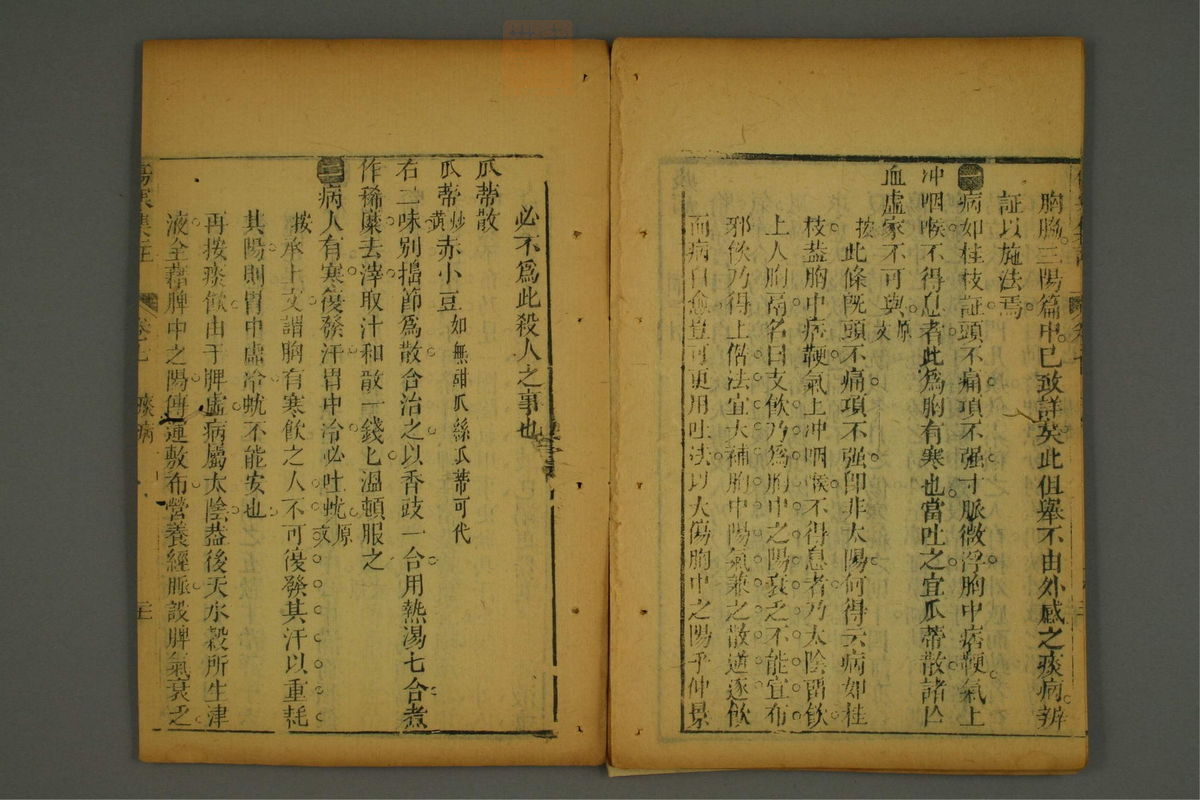 胸脇三陽篇中已致詳矣此但舉不由外感之痰病辨
証以施法焉
一病如桂枝証頭不痛項不强寸脈微浮胸中痞鞕氣上
冲咽喉不得息者此爲胸有寒也當吐之宜瓜蒂散諸亡
血虛家不可與原文
按此條既頭不痛項不强卽非太陽何得云病如桂
枝葢胸中痞鞕氣上冲咽喉不得息者乃太陰留飲
上人胸膈名曰支飲乃爲胸中之陽衰乏不能宣布
邪飲乃得上僭法宜大補胸中陽氣兼之散逆逐飲
而病自愈豈可更用吐法以大傷胸中之陽乎仲景
必不爲此殺人之事也
瓜蒂散
瓜蒂炒黃赤小豆如無甜瓜絲瓜蒂可代
右二味別搗篩爲散合治之以香豉一合用熱湯七合煮
作稀糜去滓取汁和散一錢匕溫頓服之
二病人有寒復發汗胃中冷必吐蚘原文
按承上文謂胸有寒飲之人不可復發其汗以重耗
其陽則胃中虛冷蚘不能安也
再按痰飲由于脾虛病屬太陰葢後天水穀所生津
液全藉脾中之陽傳運敷布營養經脈設脾氣衰乏
痰病